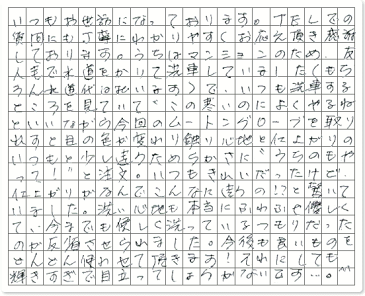 いつもお世話になっております。下だしての
質問にも丁寧にわかりやすくお応え頂き感謝
しております。うちはマンションのため、友
人宅で水道をかりて洗車していました(もち
ろん水道代は払います)で、いつも洗車する
ところを見ていて"この寒いのによくやるね"
といいながら今回のムートングローブを取り
出すと目の色が変わり触り心地と仕上がりの
いつもと少し違うためらかさに"うちのもや
って!"と注文。いつもきれいだったけど、
仕上がりがなんでこんなに違うの!?と驚いて
いました。洗い心地も本当にふわふわ優しく
て、今までも優しく洗っているつもりだった
のが反省させられました。今後も良いものを
どんどん使わせて頂きます!それにしても
輝きすぎで目立ってしょうがないです…。^^